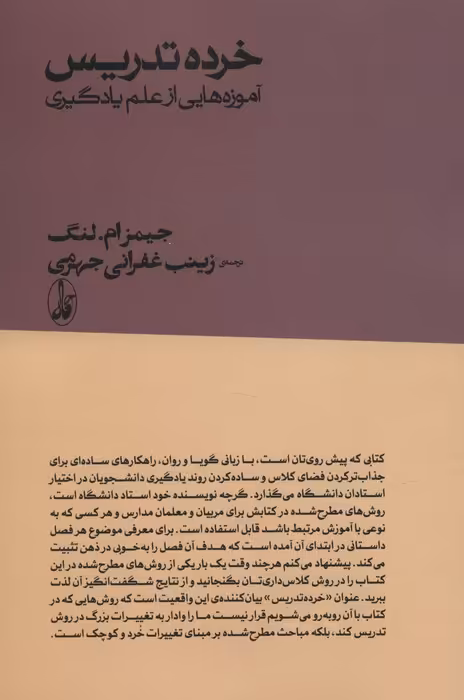 خرده تدریس
آموزه‌هایی از علم یادگیری
جیمز ام. لنگ
ترجمه‌ی زینب غفرانی جهرمی
کتابی که پیش روی‌تان است، با زبانی گویا و روان، راهکارهای ساده‌ای برای
جذاب‌ترکردن فضای کلاس و ساده‌کردن روند یادگیری دانشجویان در اختیار
استادان دانشگاه می‌گذارد. گرچه نویسنده خود استاد دانشگاه است،
روش‌های مطرح‌شده در کتابش برای مربیان و معلمان مدارس و هر کسی که به
نوعی با آموزش مرتبط باشد قابل استفاده است. برای معرفی موضوع هر فصل
داستانی در ابتدای آن آمده است که هدف آن فصل را به‌خوبی در ذهن تثبیت
می‌کند. پیشنهاد می‌کنم هرچند وقت یک بار یکی از روش‌های مطرح‌شده در این
کتاب را در روش کلاس‌داری‌تان بگنجانید و از نتایج شگفت‌انگیز آن لذت
ببرید. عنوان «خرده‌تدریس» بیان‌کننده‌ی این واقعیت است که روش‌هایی که در
کتاب با آن روبه‌رو می‌شویم قرار نیست ما را وادار به تغییرات بزرگ در روش
تدریس کند، بلکه مباحث مطرح‌شده بر مبنای تغییرات خُرد و کوچک است.